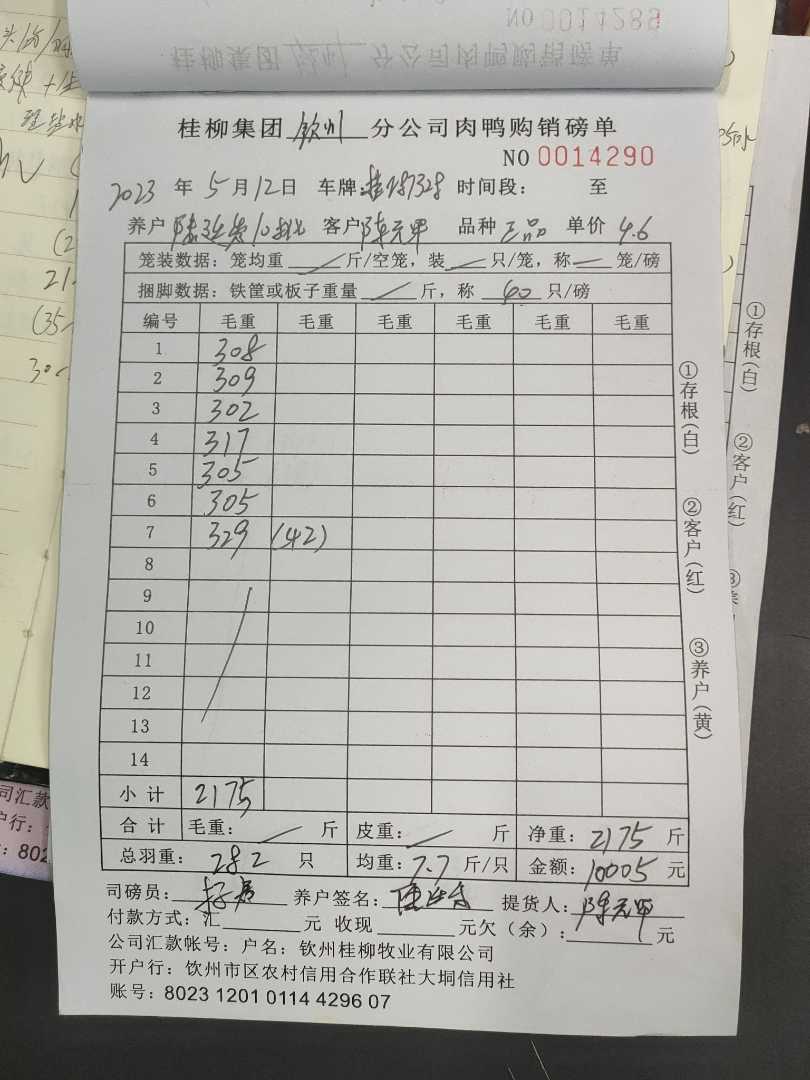 NO 0014289
桂柳集团 钦州 分公司肉鸭购销磅单
桂柳集团 钦州 分公司肉鸭购销磅单
NO 0014290
2023 年 5 月 12 日 车牌: 时间段: 至
养户 客户 陈元甲 品种 三品 单价 4.6
笼装数据: 笼均重 斤/空笼, 装 只/笼, 称 笼/磅
捆脚数据: 铁筐或板子重量 斤, 称 40 只/磅
编号 毛重 毛重 毛重 毛重 毛重 毛重
1 308
2 309
3 302
4 317
5 305
6 305
7 329 (42)
8
9
10
11
12
13
14
小计 2175
合计 毛重: 斤 皮重: 斤 净重: 2175 斤
总羽重: 282 只 均重: 7.7 斤/只 金额: 10005 元
司磅员: 养户签名: 提货人: 陈元甲
付款方式: 汇 元 收现 元欠(余): 元
公司汇款帐号: 户名: 钦州桂柳牧业有限公司
开户行: 钦州市区农村信用合作联社大垌信用社
账号: 8023 1201 0114 4296 07
①存根(白)
②客户(红)
③养户(黄)
①存根(白)
②客户(红)